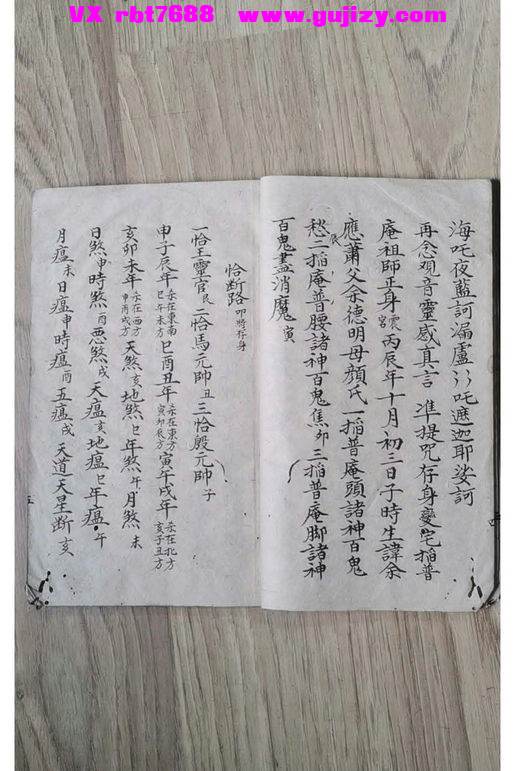 VX rbt7688 www.gujizy.com
海吒夜藍訶漏盧氵氵吒遮迦耶娑訶
再念观音靈感真言 准提咒存身變宅掐普
庵祖師正身 宸宫 丙辰年十月初三日子時生諱余
應蕭父余德明母顏氏一掐普庵頭諸神百鬼
愁辰二掐庵普腰諸神百鬼焦卯三掐普庵脚諸神
百鬼盡消魔寅
恰断路 卯時存身
一恰王靈官艮二恰馬元帥丑三恰殷元帥子
申子辰年 杀在東南 巳午未方 巳酉丑年 杀在東方 寅卯辰方 寅午戌年 杀在北方 亥子丑方
亥卯未年 杀在西方 申酉戌方 天煞亥地煞巳年煞午月煞未
日煞申時煞酉惡煞戌天瘟亥地瘟巳年瘟午
月瘟未日瘟申時瘟酉五瘟戌 天道天星断亥